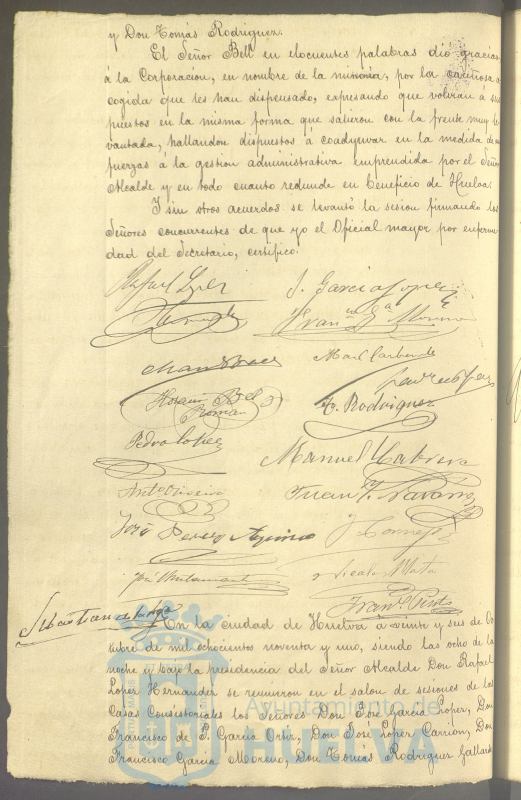 y Don Tomás Rodriguez.
El Señor Bell en elocuentes palabras dió gracias
á la Corporacion, en nombre de la minoria, por la cariñosa a
cogida que les han dispensado, expresando que volvian á sus
puestos en la misma forma que salieron con la frente muy le
vantada, hallandose dispuestos á coadyuvar en la medida de sus
fuerzas á la gestion administrativa emprendida por el Señor
Alcalde y en todo cuanto redunde en beneficio de Huelva.
I sin otros acuerdos se levantó la sesion firmando los
Señores concurrentes de que yo el Oficial mayor por enferme
dad del Secretario, certifico.
Rafael Lopez
Hernandez
J. Garcia Lopez
Fran.co Ga. Moreno
Horacio Bel
Roman
T. Rodriguez
Pedro Lopez
Manuel Cabrera
Anto. Oliveira
Juan F. Navarro
José Perez Aquino
J. Cornejo
José Bustamante
Nicolas Mata
Fran.co Pinto
Sebastian de la
En la ciudad de Huelva á veinte y seis de Oc
tubre de mil ochocientos noventa y uno, siendo las ocho de la
noche y bajo la presidencia del Señor Alcalde Don Rafael
Lopez Hernandez se reunieron en el salon de sesiones de las
Casas Consistoriales los Señores Don José Garcia Lopez, Don
Francisco de P. Garcia Ortiz, Don José Lopez Carrion, Don
Francisco Garcia Moreno, Don Tomás Rodriguez Gallardo
Ayuntamiento de
HUELVA